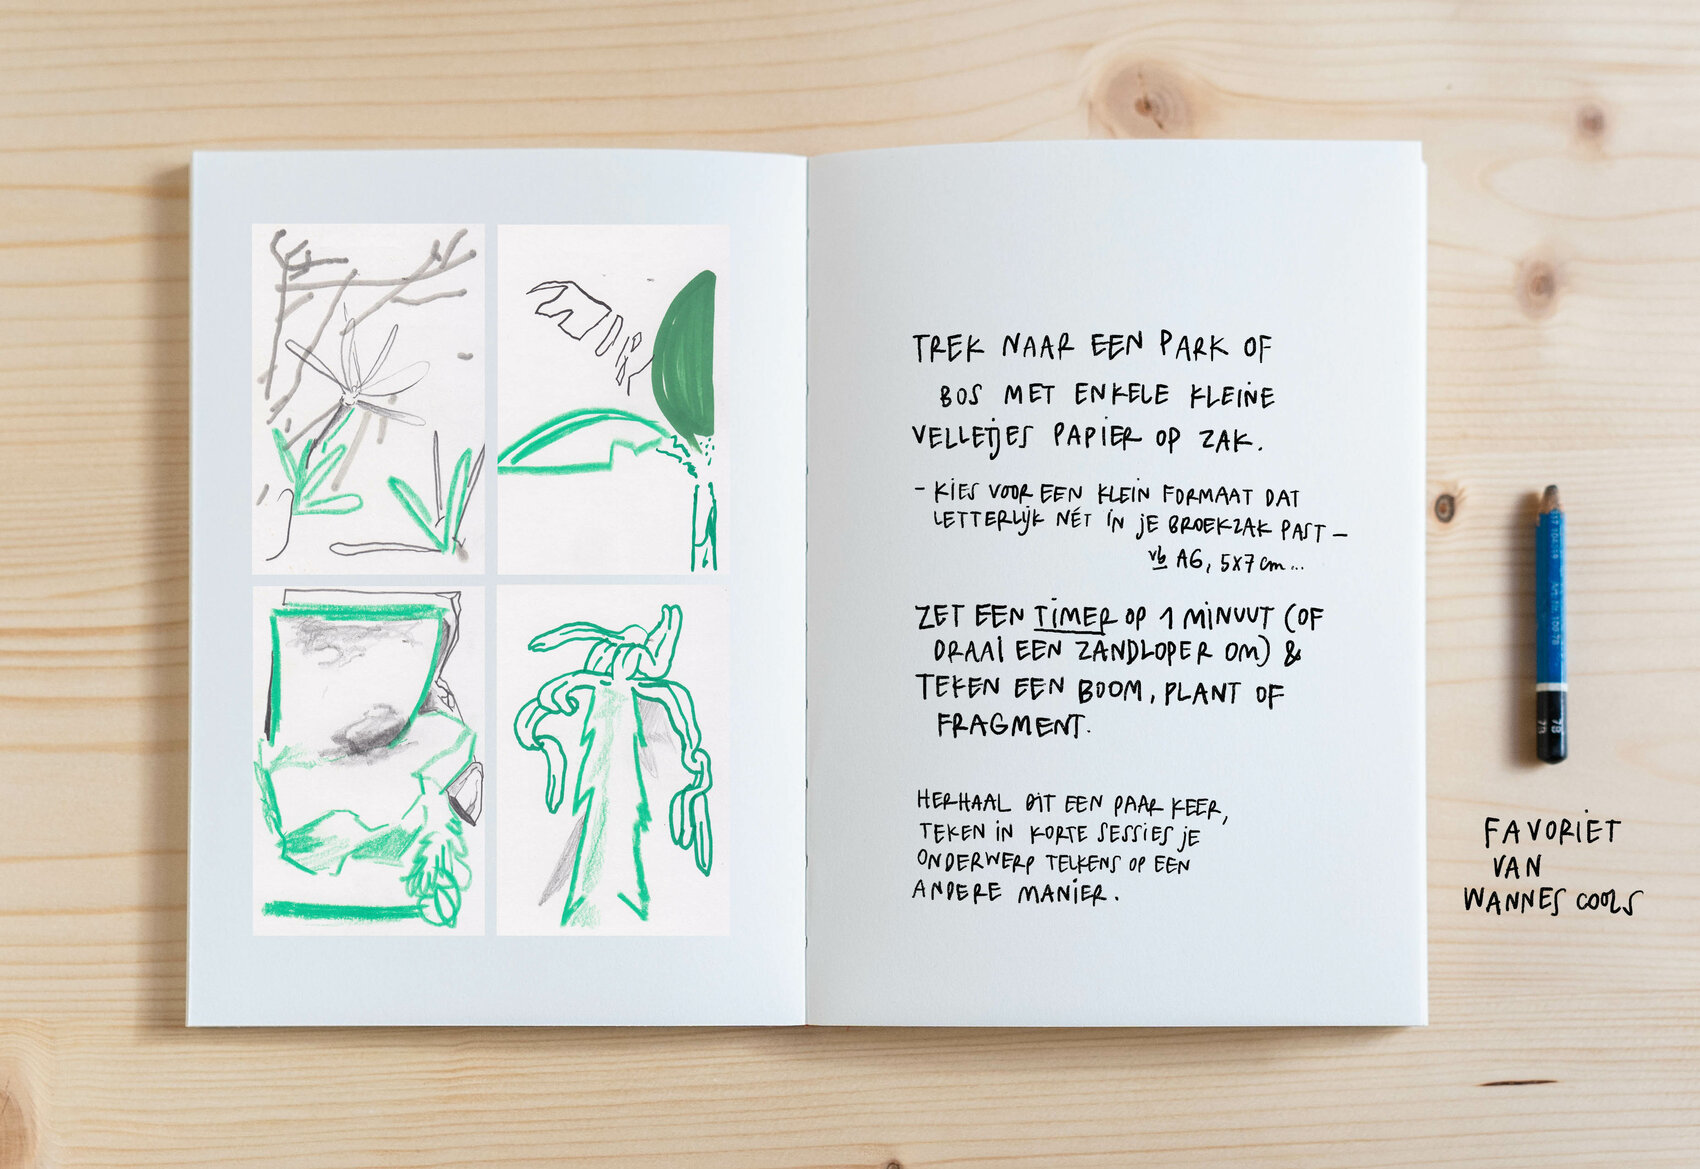 TREK NAAR EEN PARK OF
BOS MET ENKELE KLEINE
VELLETJES PAPIER OP ZAK.
- KIES VOOR EEN KLEIN FORMAAT DAT
LETTERLIJK NÉT IN JE BROEKZAK PAST -
vb A6, 5x7 cm...
ZET EEN TIMER OP 1 MINUUT (OF
DRAAI EEN ZANDLOPER OM) &
TEKEN EEN BOOM, PLANT OF
FRAGMENT.
HERHAAL DIT EEN PAAR KEER,
TEKEN IN KORTE SESSIES JE
ONDERWERP TELKENS OP EEN
ANDERE MANIER.
7B
FAVORIET
VAN
WANNES COOLS